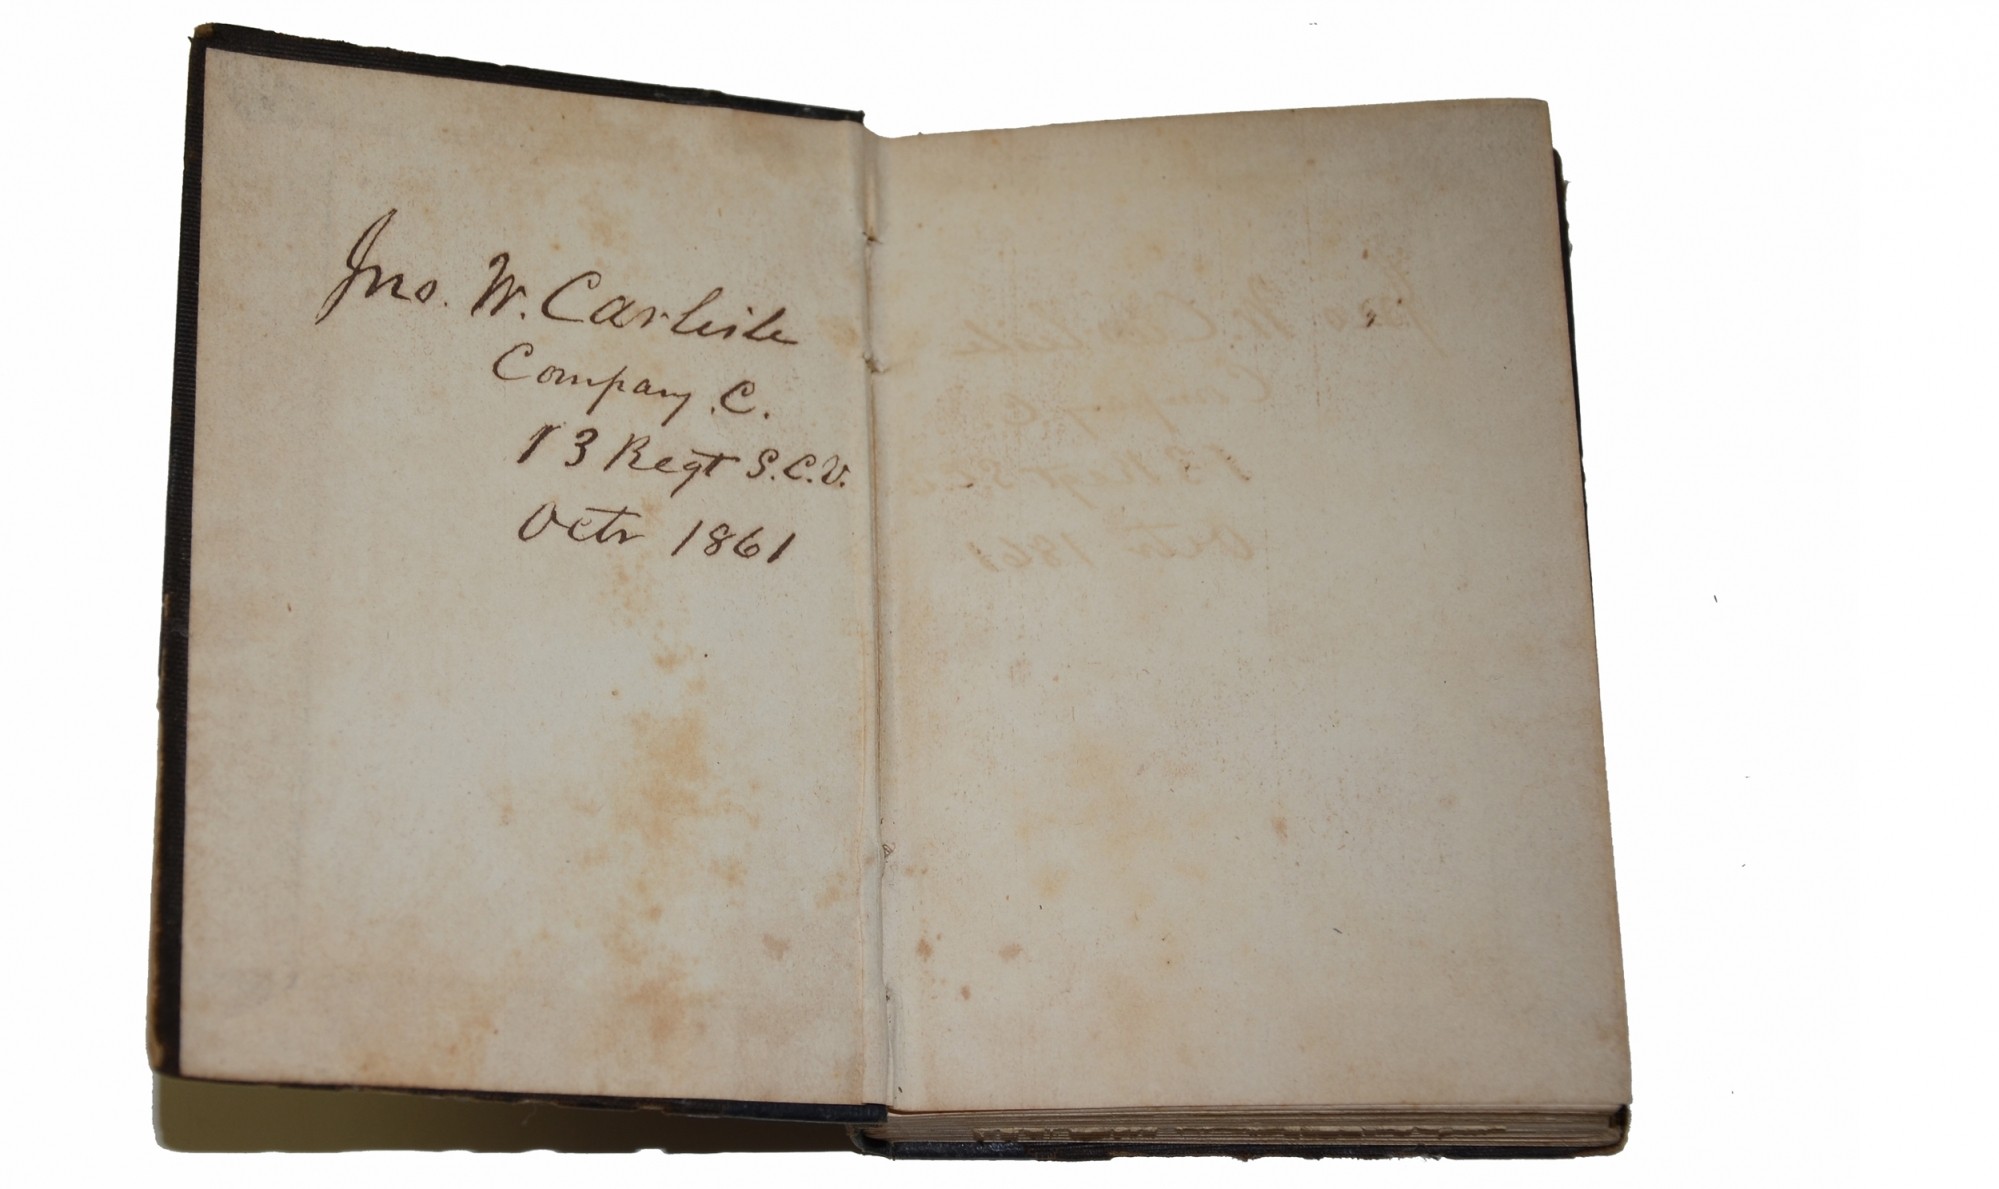 Jno. W. Carlisle
Company C.
13 Regt S.C.V.
Octr 1861